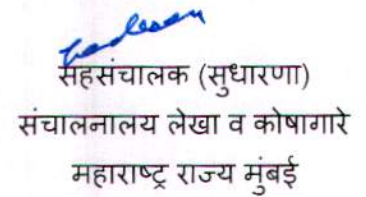 सहसंचालक (सुधारणा)
संचालनालय लेखा व कोषागारे
महाराष्ट्र राज्य मुंबई